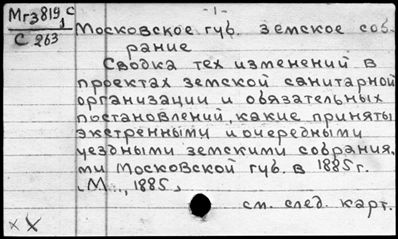 Мгз819 с
1
С 263
-1-
Московское губ. земское соб-
рание
Сводка тех изменений в
проектах земской санитарной
организации и обязательных
постановлений, какие приняты
экстренными и очередными
уездными земскими собрания-
ми Московской губ. в 1885 г.
М., 1885.
см. след. карт.